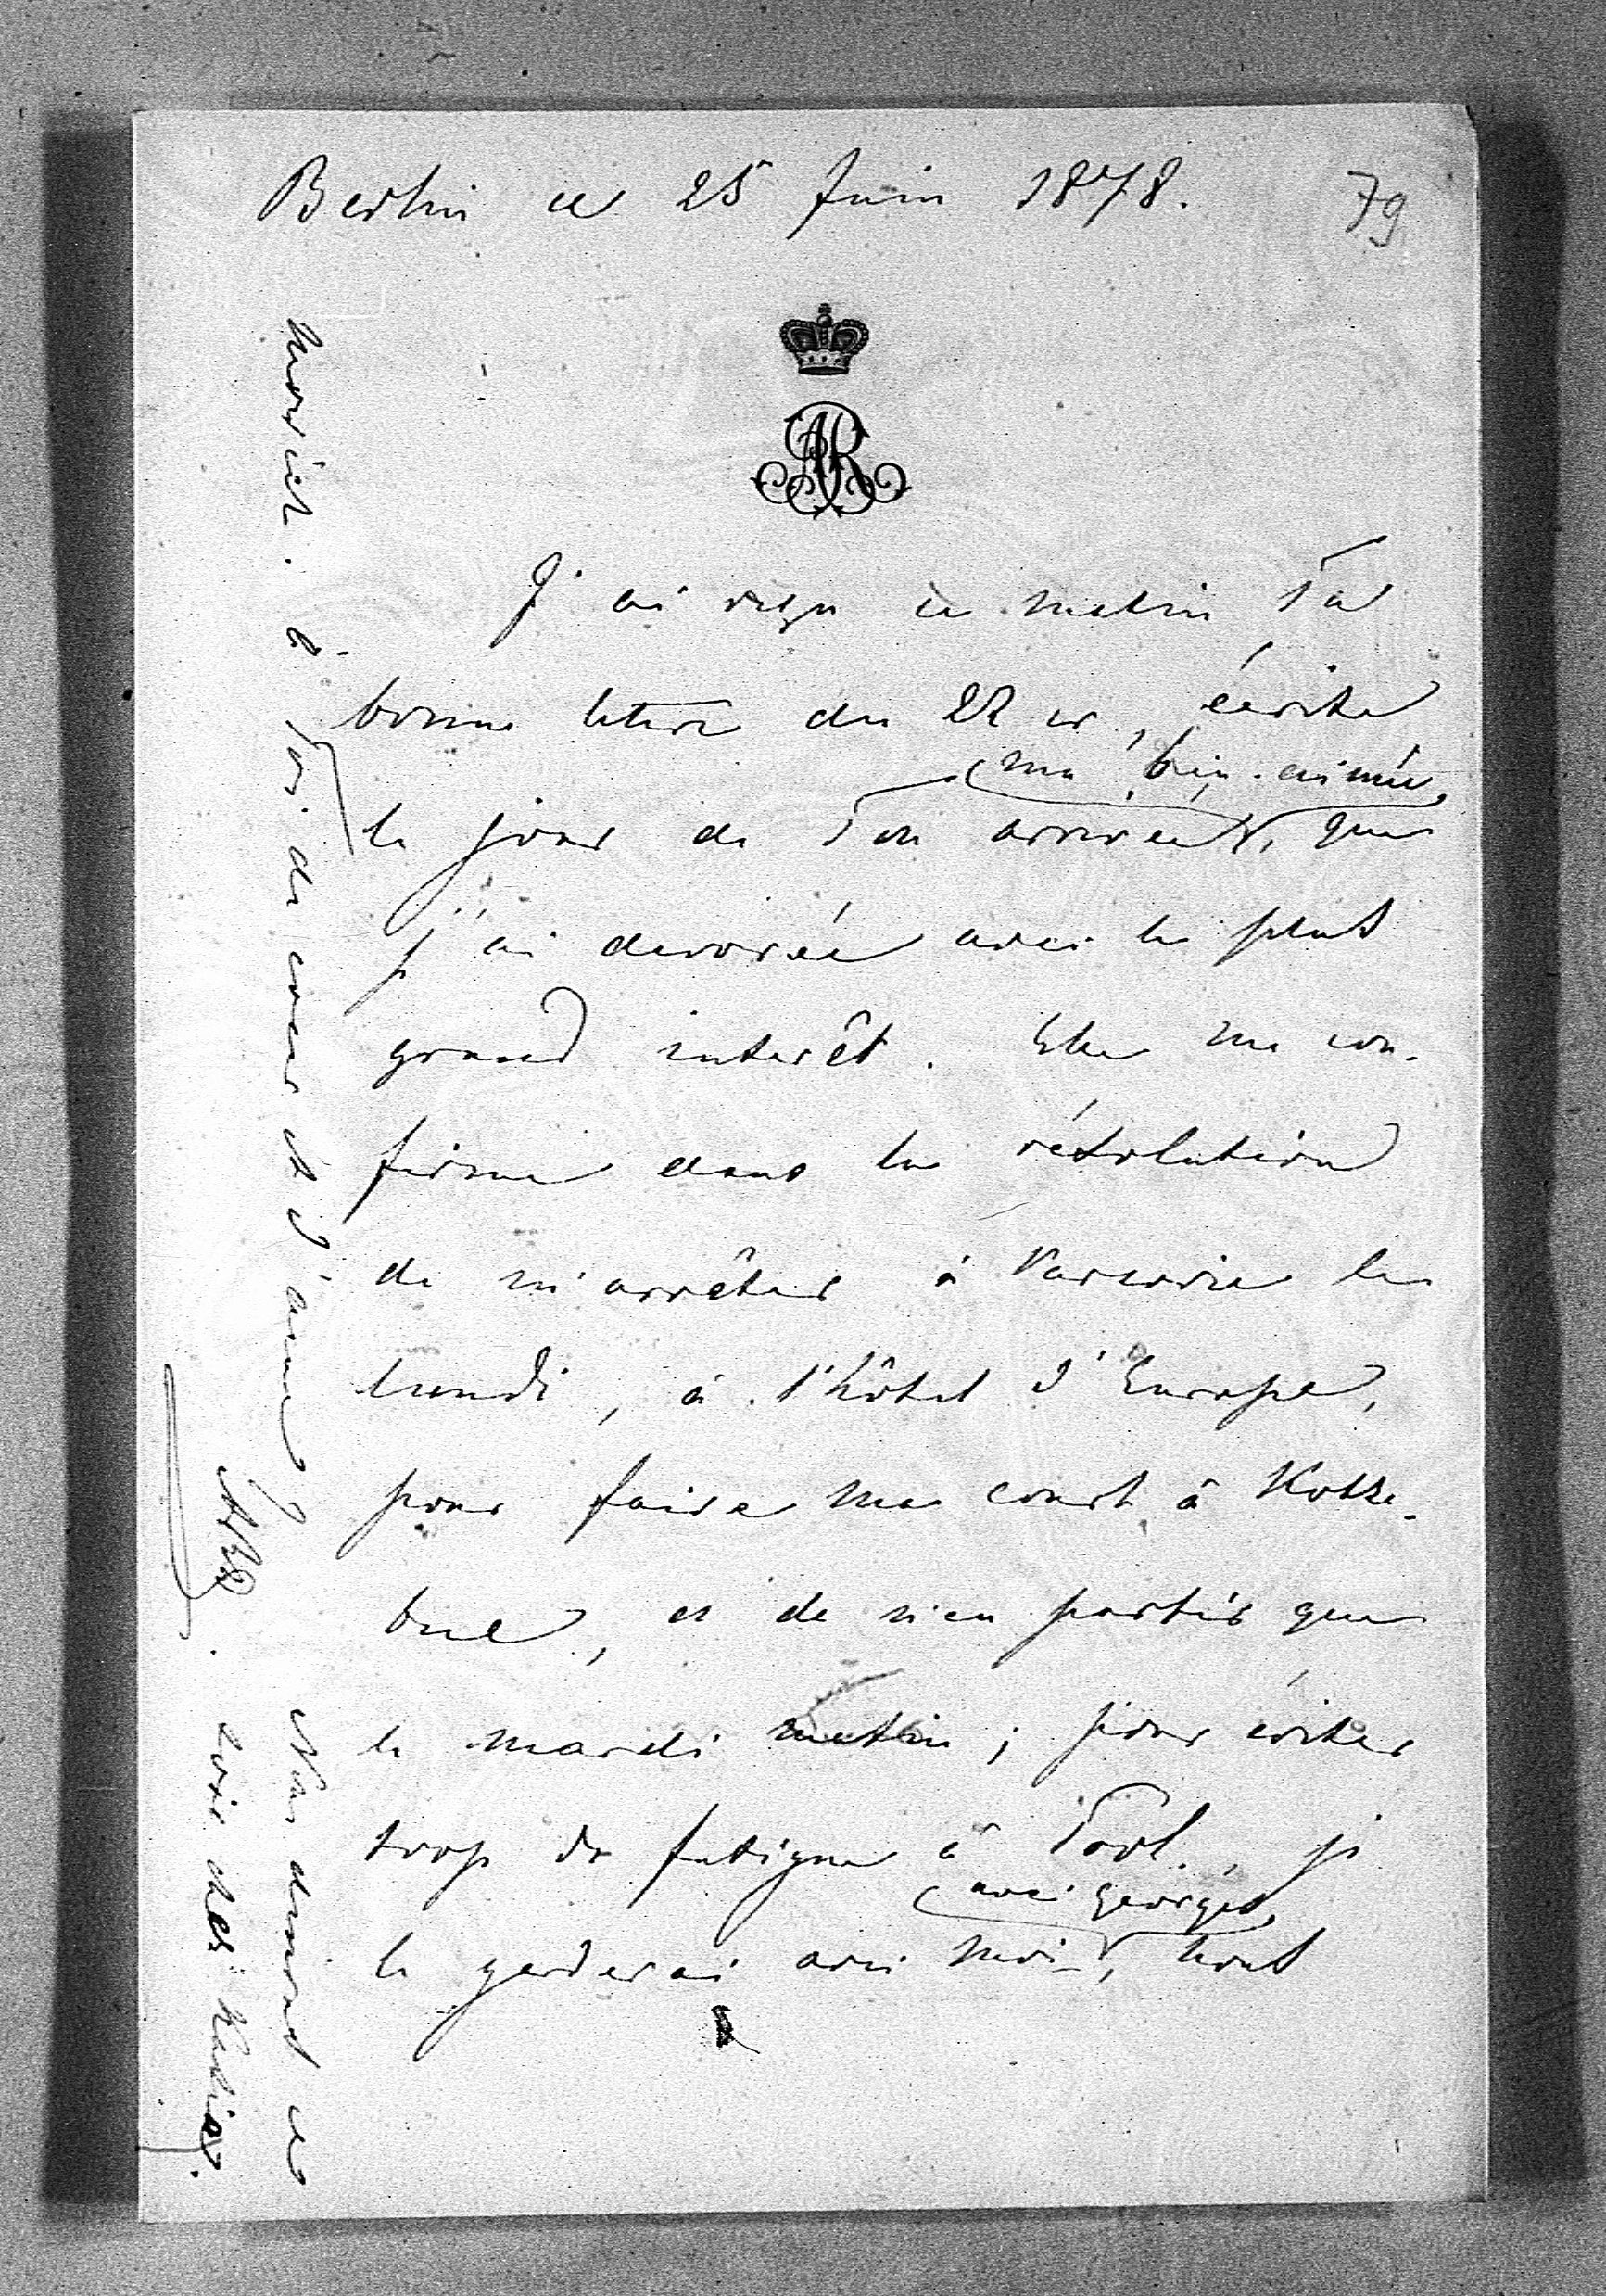 Berlin ce 25 Juin 1878.
79
AR
J'ai reçu ce matin Ta
bonne lettre du 22 cr, écrite
le jour de Ton arrivée, ma bien-aimée, que
j'ai dévorée avec le plus
grand intérêt. Elle me con-
firme dans la résolution
de m'arrêter à Varsovie le
lundi, à l'hôtel d'Europe,
pour faire ma court à Kotze-
bue, et de n'en partir que
le mardi matin; pour éviter
trop de fatigue à Tool., je
le garderai avec moi, avec Georges, tout
à Toi de coeur et d'âme
Nous dinons ce
soir chez